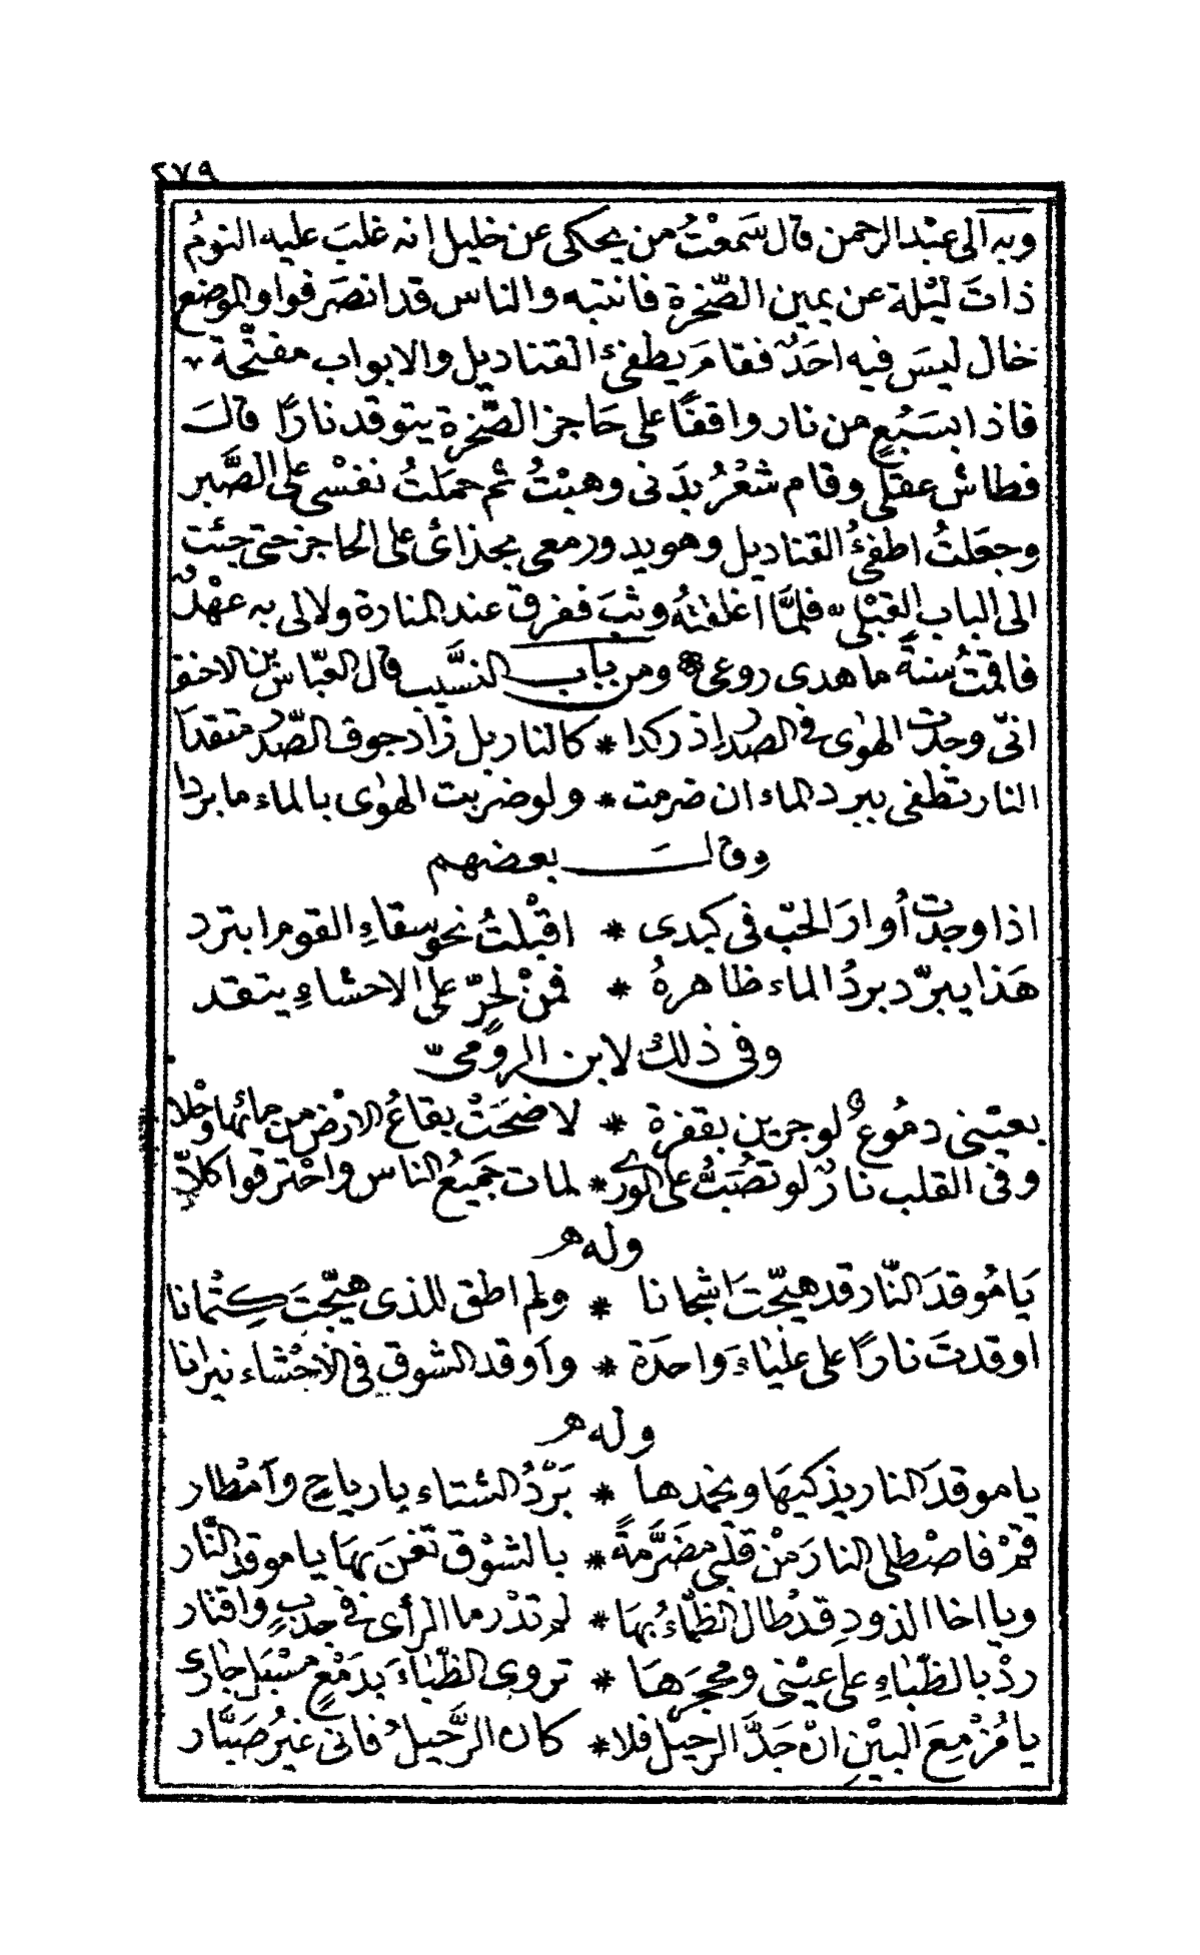 ٢٧٩
وبه الى عبْد الرحمن قال سَمعْتُ من يحكى عن خليل انه غلبَ عليه النومُ
ذاتَ ليْلة عن يمين الصّخرة فانتبه والناس قد انصَرفوا والموضع
خال ليسَ فيه احَدٌ فقامَ يطفئ القناديل والابواب مفتّحة
فاذا بسَبُعٍ من نار واقفًا على حَاجز الصّخرة يتوقد نارًا قالَ
فطاش عقلى وقام شعْرُ بدَنى وهبْتُ ثم حمَلتُ نفسْى على الصَّبر
وجعَلتُ اطفئُ القناديل وهو يدور معى بحذائى على الحاجز حتى جئت
الى الباب القبْلىّ فلمَّا اغلقتهُ وثبَ ففرق عند المنارة ولا لى به عهْدٌ
فاقمْتُ سنةً ما هدى روعى ومن باب النسَّيب قال العبّاس بن الاحنف
انّى وجدْت الهوٰى فى الصدر اذ ركدا * كالنار بل زاد جوف الصّدر متقدَا
النار تطفى ببرد الماء ان ضرمت * ولو ضربت الهوٰى بالماء ما بردا
وقالَ بعضهم
اذا وجدْت أُوارَ الحبّ فى كبدى * اقبْلتُ نحو سقاءِ القوم ابترد
هَذا يبرّد بردُ الماء ظاهرهُ * فمنْ لحرٍّ على الاحشاءِ يتقد
وفى ذلك لابن الرومىّ
بعيْنى دمُوعٌ لو جرين بقفرة * لاضحَتْ بقاعُ الارْض من مائها وحْلا
وفى القلب نارٌ لو تصُبُّ على الورى * لمات جَميعُ الناس واحْترقوا كلاَّ
وله
يَا مُوقدَ النّار قد هيّجتَ اشجانا * ولم اطق للذى هيّجتَ كِتْمانا
اوقدتَ نارًا على عليٰاءَ واحدَة * واَوقد الشوق فى الاحْشاء نيرٰانا
وله
يا موقدَ النار يذكيهَا ويخمدها * بَرْدُ الشتاء بارياحٍ وآمْطار
قمْ فاصْطلى النارَ منْ قلْبى مضَرَّمةً * بالشوْق تغْنَ بهَا يا موقد النَّار
ويا اخا الذودِ قدْ طال الظّماءُ بهَا * لم تدْر ما الرأى فى جدْبٍ واقتار
ردْ بالظّبٰاءِ على عيْنى ومحجَرهَا * تروى الظّبٰاءَ بدَمْعٍ مسْبَل جارى
يا مُزْمِعَ البيْنِ انْ جَدَّ الرحيل فلا * كان الرَّحيلُ فانى غيرُ صَبَّار